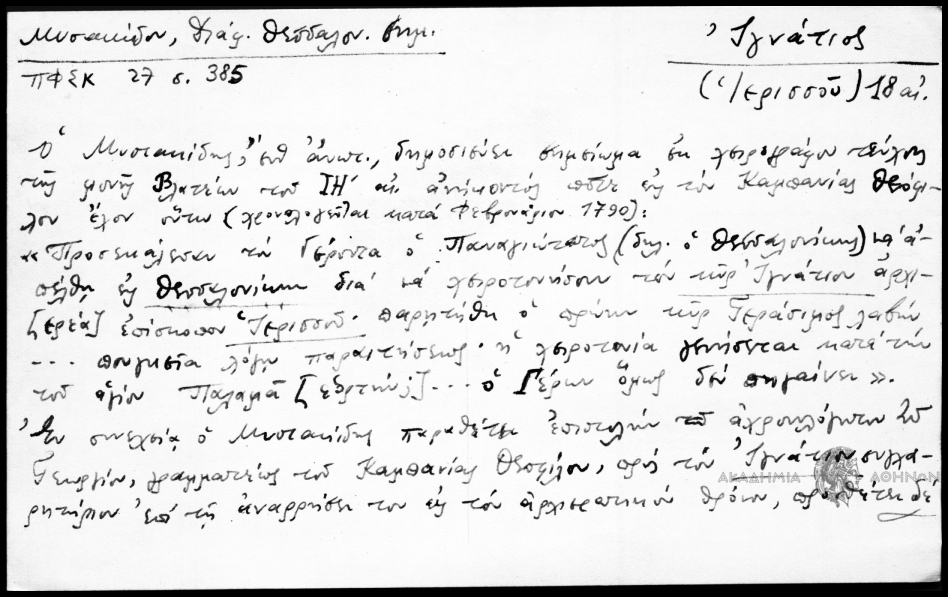 Μυστακίδου, Διάφ. Θεσσαλον. σημ.
ΠΦΣΚ 27 σ. 385
Ἰγνάτιος
(Ἱερισσοῦ) 18 αἰ.
Ὁ Μυστακίδης, ἔνθ' ἀνωτ., δημοσιεύει σημείωμα ἐκ χειρογράφου τεύχους
τῆς μονῆς Βλατέων τοῦ ΙΗ´ αἰ. ἀνήκοντός ποτε εἰς τὸν Καμπανίας Θεόφι-
λον ἔχον οὕτω (χρονολογεῖται κατὰ Φεβρουάριον 1790):
«Προσεκάλεσεν τὸν Γέροντα ὁ Παναγιώτατος (δηλ. ὁ Θεσσαλονίκης) νὰ ἀ-
πέλθῃ εἰς Θεσσαλονίκην διὰ νὰ χειροτονήσουν τὸν κῦρ Ἰγνάτιον ἀρχι-
[ερέα] ἐπίσκοπον Ἱερισσοῦ· παρῃτήθη ὁ πρώην κῦρ Γεράσιμος λαβὼν
... πουγγεῖα λόγῳ παραιτήσεως· ἡ χειροτονία γενήσεται κατὰ τὴν
τοῦ ἁγίου Παλαμᾶ [ἑορτήν;] ... ὁ Γέρων ὅμως δὲν πηγαίνει».
Ἐν συνεχείᾳ ὁ Μυστακίδης παραθέτει ἐπιστολὴν τοῦ ἀχρονολόγητον τοῦ
Γεωργίου, γραμματέως τοῦ Καμπανίας Θεοφίλου, πρὸς τὸν Ἰγνάτιον συγχα-
ρητήριον ἐπὶ τῇ ἀναρρήσει του εἰς τὸν ἀρχιερατικὸν θρόνον, προσθέτει δὲ
ΑΚΑΔΗΜΙΑ ΑΘΗΝΩΝ